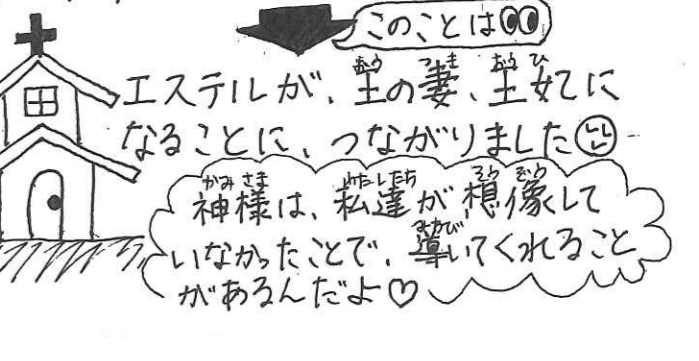 このことは
エステルが、王の妻、王妃に
なることに、つながりました
神様は、私達が想像して
いなかったことで、導いてくれること
があるんだよ♡